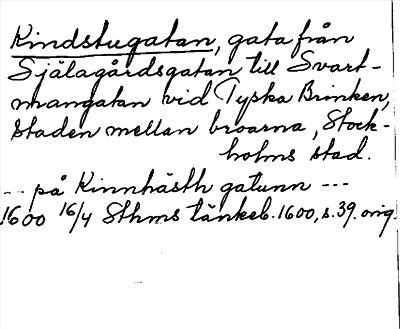 Kindstugatan, gata från
Själagårdsgatan till Svart-
mangatan vid Tyska Brinken,
staden mellan broarna, Stock-
holms stad.
-- på Kinnhästh gatunn ---
1600 16/4 Sthms tänkeb. 1600, s. 39. orig.